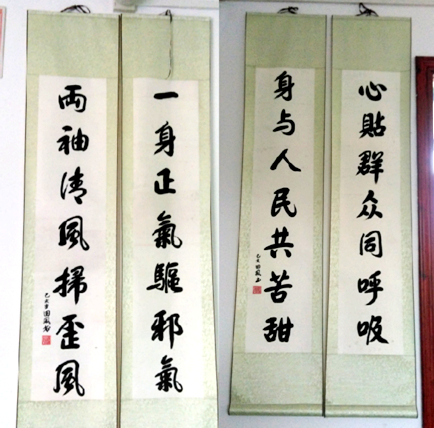 一身正氣驅邪氣
両袖清風掃歪風
心貼群众同呼吸
身与人民共苦甜